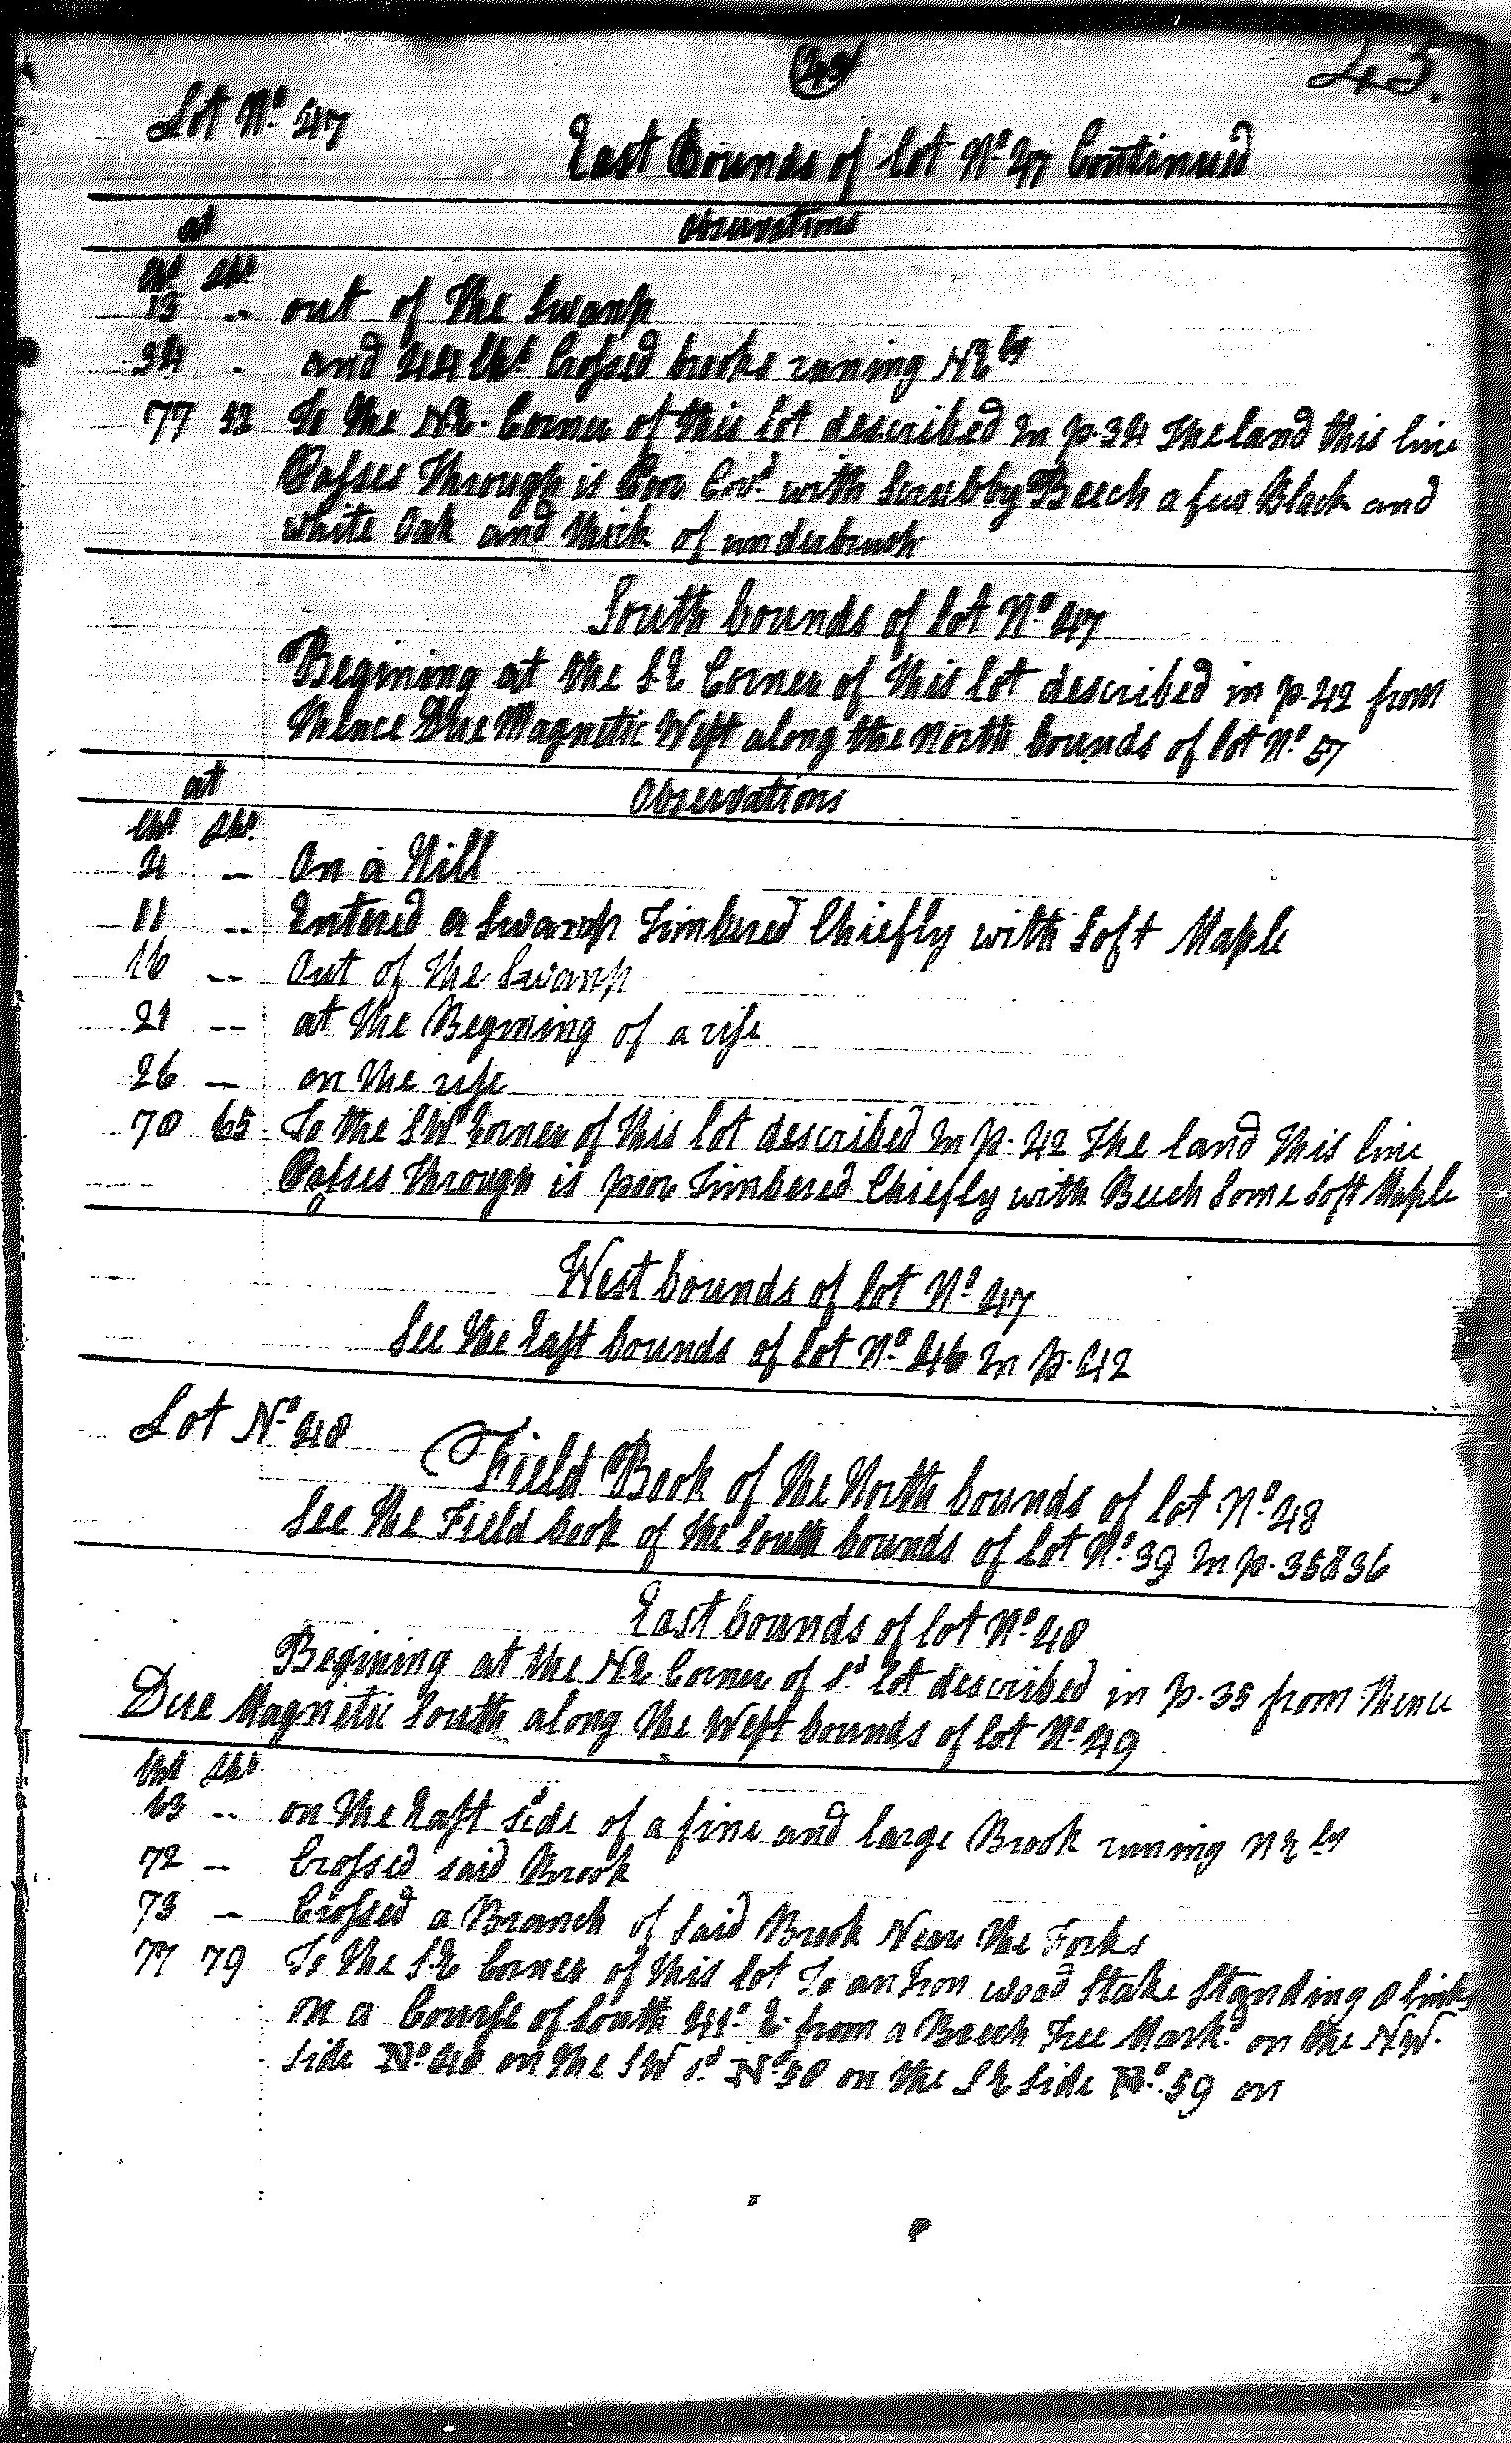 43.
Lot Nº 47
East Bounds of lot Nº 47 Continued
at Observations
Chs Lks
13 .. out of the Swamp
34 . and 44 lks Crossed brooks runing NEly
77 32 To the NE. Corner of this lot described In p. 34 The land this line
Passes through is Poor Cov.d with Scrubby Beech a few Black and
white Oak and thick of underbrush
South bounds of lot Nº 47
Begining at the SE Corner of this lot described in p. 42 from
thence Due Magnetic West along the North bounds of lot Nº 57
at Observations
Chs Lks.
4 — On a Hill
11 .. Entered a Swamp Timbered Chiefly with Soft Maple
16 -- Out of the Swamp
21 -- at the Begining of a rise
26 — on the rise
70 65 To the SW Corner of this lot described In p. 42 The land this line
Passes through is poor Timbered Chiefly with Beech Some Soft Maple
West bounds of lot Nº 47
See the East bounds of lot Nº 46 In p. 42
Lot Nº 48
Field Book of the North bounds of lot Nº 48
See the Field book of the South bounds of lot Nº 39 In p. 35 & 36
East bounds of lot Nº 48
Begining at the NE Corner of sd lot described in p. 35 from thence
Due Magnetic South along the West bounds of lot Nº 49
Chs Lks
63 .. on the East side of a fine and large Brook runing NEly
72 — Crossed said Brook
73 — Crossed a Branch of said Brook Near the Forks
77 79 To the SE Corner of this lot To an Iron wood Stake Standing 8 links
on a Course of South 41º E. from a Beech Tree Mark.d on the NW.
side Nº 48 on the SW sd Nº 58 on the SE side Nº 59 on